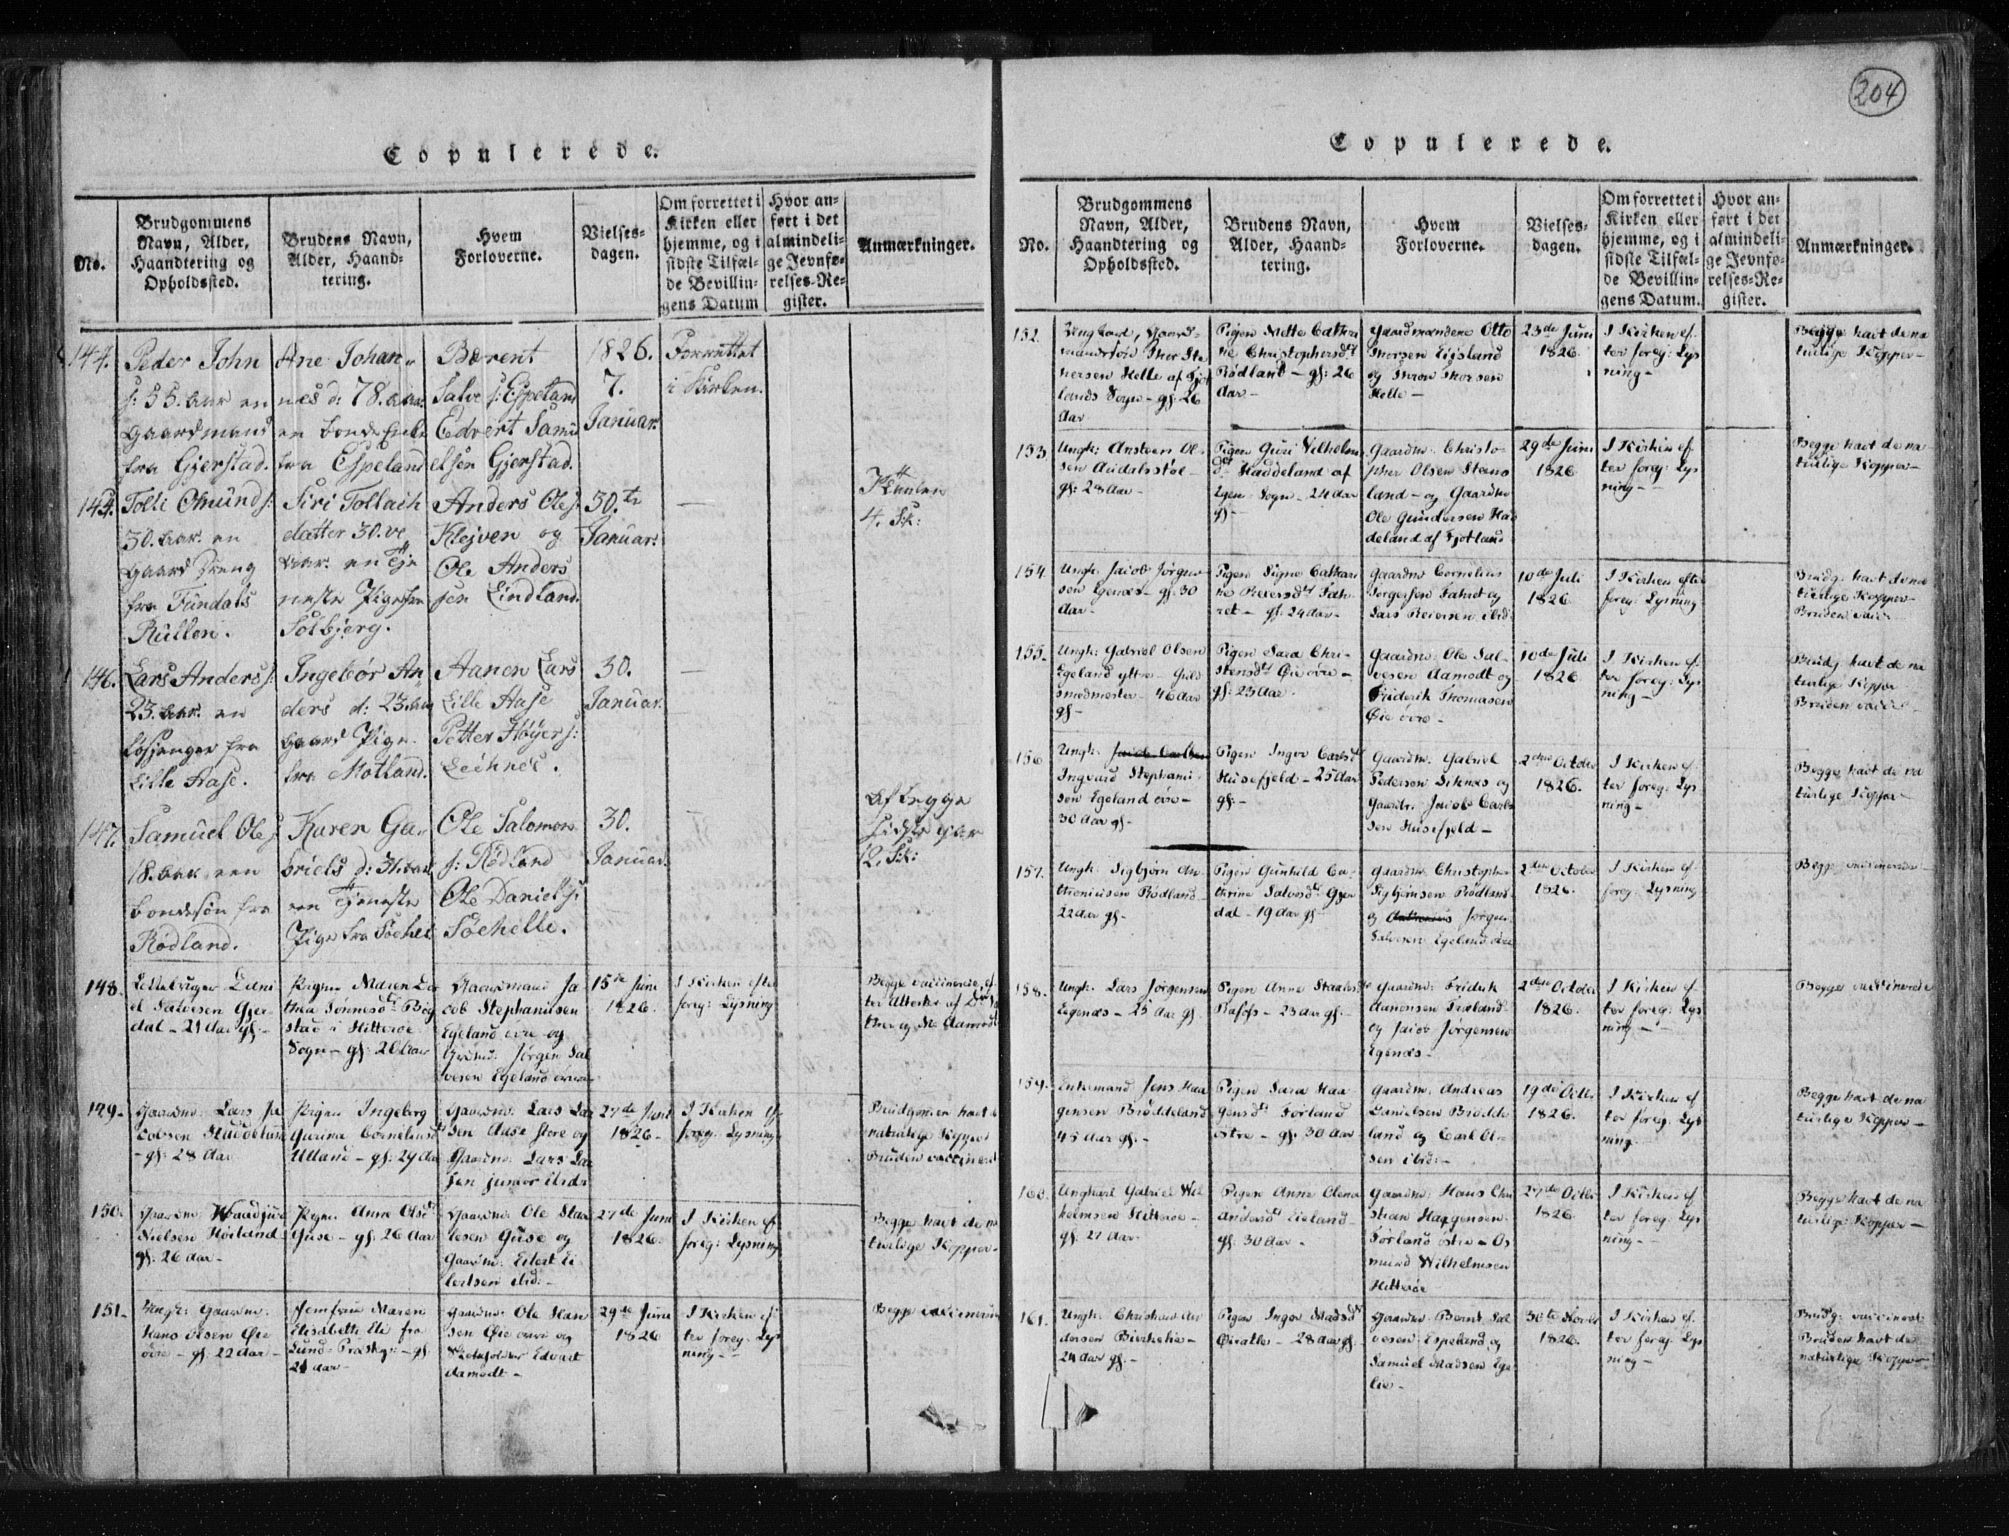 204
Copulerede.
No.
Brudgommens
Navn, Alder,
Haandtering og
Opholdssted.
Brudens Navn,
Alder, Haand-
tering.
Hvem
Forloverne.
Vielses-
dagen.
Om forrettet i
Kirken eller
hjemme, og i
sidste Tilfæl-
de Bevillin-
gens Datum
Hvor an-
ført i det
almindeli-
ge Jevnfø-
relses-Re-
gister.
Anmærkninger.
144.
Peder John
s: 55. aar en
Gaardmand
fra Gjerstad.
Ane Johan-
nes d: 78. aar
en bonde Enke
fra Espeland
Bærent
Salve s: Espeland
Edvert Samu
elsen Gjerstad.
1826.
7.
Januar.
Forrettet
i Kirken.
144.
Tolli Omund s:
30. aar. en
Gaard Dreng
fra
Rullen.
Siri Tollach
datter 30. ve
aar. en Tje
neste Pige fra
Solbjerg.
Anders Ole s:
Klejven og
Ole Anders
sen Lindland.
30.te
Januar.
4. Sk:
146.
Lars Anders s:
23. aar. en
fra
Lille Aase.
Ingebør An
ders d: 23. aar
Gaard Pige
fra Motland.
Aanen Lars
Lille Aase
Petter Høyer s:
30.
Januar.
147.
Samuel Ole s
18. aar een
bondesøn fra
Rødland.
Karen Ga-
briels d: 31. aar
een Tjeneste
Pige fra
Ole Salomon
s: Rødland
Ole Daniels s:
30.
Januar.
Af begge
12. Sk:
148.
Dani
el Salvesen Gyer
dal - 21 Aar gl. -
Pigen Maren Do
thea Tønnesdt Bøg
stad i Hitterøe
Sogn - gl: 20 Aar
Gaardmand Ja
cob Stephanissen
Egeland øvre og
Jørgen Sal
vesen Egeland øvre
15de Juni
1826.
I Kirken efter
foreg: Lysning
Begge vaccinerede, ef
ter Attester af
og M. Aamodt
149.
Gaardm: Lars Ja
cobsen
- gl: 28 Aar
Pigen Ingeborg
Gurina Corneliusdt
Ulland - gl: 24 Aar
Gaardm: Lars Lar
sen Aase store og
Gaardm: Lars Lar
sen junior ibid:
27de Juni
1826 -
I Kirken ef
foreg: Lysning
Brudgomen havt de
naturlige Kopper
Bruden vaccineret
150.
Gaardm:
Nielsen Høiland
gl: 26 Aar -
Pigen Anna Olsdt
Guse - gl: 26 Aar
Gaardm: Ole
lesen Guse og
Gaardm: Eilert Ei
lertsen ibid: -
27de Juni
1826.
I Kirken ef.
foreg: Lysning
Begge havt de na
turlige Kopper -
151.
Ungk: Gaardm:
Hans Olsen Øie
øvre - gl. 22 Aar -
Jomfrue Maren
Elisabeth Eli fra
Sund Præstegj: - gl
21 Aar -
Gaardm: Ole Han
sen Øie øvre og
Edvart
Aamodt -
29de Juni
1826
I Kirken ef
ter foreg: Lys
ning -
Begge vaccinerede
Copulerede.
No.
Brudgommens
Navn, Alder,
Haandtering og
Opholdssted.
Brudens Navn,
Alder, Haand-
tering.
Hvem
Forloverne.
Vielses-
dagen.
Om forrettet i
Kirken eller
hjemme, og i
sidste Tilfæl-
de Bevillin-
gens Datum.
Hvor an-
ført i det
almindeli-
ge Jevnfø-
relses-Re-
gister.
Anmærkninger.
152.
Ungkarl, Gaard-
mandssøn Thor Ste
hersen Helle af Fjot
lands Sogn - gl: 26
Aar
Pigen Mette Cathri
ne Christophersdt
Rødland - gl: 26
Aar -
Gaardmændene Otto
Thorsen Eigsland
og Thron Thorsen
Helle -
23de Juni
1826.
I Kirken ef.
ter foreg: Lys
ning -
Begge havt de na
turlige Kopper -
153.
Ungk: Ansteen Ol-
sen Audalsstøl -
gl: 28 Aar -
Pigen Guri Vilhelms
dt Haddeland af
Sogn - 24 Aar
gl -
Gaardm: Christo-
pher Olsen
land - og Gaardm
Ole Gundersen Had
deland af Fjotland
29de Juni
1826
I Kirken ef
ter foreg: Lys
ning -
Begge havt de na
turlige Kopper -
154.
Ungk. Jacob Jørgen
sen Egenæs - gl. 30
Aar -
Pigen Signe Cathari
ne Reiersdt Fah-
ret - gl: 24 Aar -
Gaardm Cornelius
Torgersen Fahret og
Lars Reiersen ibid
10de Juli
1826.
I Kirken efter
foreg: Lysning
Brudg: havt de na
turlige Kopper -
Bruden vacc -
155.
Ungk: Gabriel Olsen
Egeland yttre - Guld
smedmester - 46 Aar
gl -
Pigen Sara Chri-
stensdt Øie øvre -
gl: 23 Aar
Gaardm: Ole Sal-
vesen Aamodt og
Friderik Thomasen
Øie øvre -
10de Juli
1826
I Kirken ef.
ter foreg: Lys
ning -
Brudg havt de na
turlige Kopper
Bruden vacci -
156
Ungk.
Ingvard Stephani-
sen Egeland øvre -
30 Aar gl -
Pigen Inger Carlsdt
Husefjeld - 25 Aar
gl. -
Gaardm. Gabriel
Pedersen og
Gaardm. Jacob Carls
sen Husefjeld -
2den October
1826.
I Kirken ef.
ter foreg: Lys
ning -
Begge havt de na
turlige Kopper -
157.
Ungk. Sigbjørn An
thoniussen Rødland -
22 Aar gl -
Pigen Gunhild Ca-
thrine Salvesdt Gyer
dal - 19 Aar gl -
Gaardm. Christopher
Sigbjørnsen Rødland
og Jørgen
Salvesen Egeland øvre
2den October
1826.
I Kirken ef.
foreg: Lysning
Begge vaccinerede
158.
Ungk. Lars Jørgensen
Egenæs - 25 Aar gl.
Pigen Anna
Rafoss - 23 Aar gl. -
Gaardm: Fridrik
Aanensen Træland
og Jacob Jørgensen
Egenæs -
2den October
1826.
I Kirken ef
ter foreg: Lys
ning -
Begge vaccinerede
159.
Enkemand Jens Haa
gensen Brøddeland
45 Aar gl. -
Pigen Sara Haa
gensdt Førland
østre - gl. 30 Aar
Gaardm: Andreas
Danielsen Brødde
land og Carl Ol-
sen ibid: -
19de Octbr
1826.
I Kirken ef
ter foreg: Lys
ning.
Begge havt de na
turlige Kopper -
160.
Ungkarl Gabriel Wil
helmsen Hitterøe -
gl. 27 Aar.
Pigen Anne Olena
Andersdt Eieland -
gl: 30 Aar -
Gaardm: Hans Chri
stian Haagensen
Førland østre - Os
mund Wilhelmsen
Hitterøe
27de Octbr
1826.
I Kirken ef
ter foreg: Lys
ning -
Begge havt de na
turlige Kopper -
161.
Ungk: Christian An
dersen Birkelie -
24 Aar gl. -
Pigen Inger Madsdt
- 28 Aar gl.
Gaardm Bernt Sal
vesen Espeland og
Samuel Madsen Ege
lie -
30te Novbr
1826.
I Kirken ef.
ter foreg: Lys
ning -
Brudg. vaccineret
Bruden havt de
naturlige Kopper -